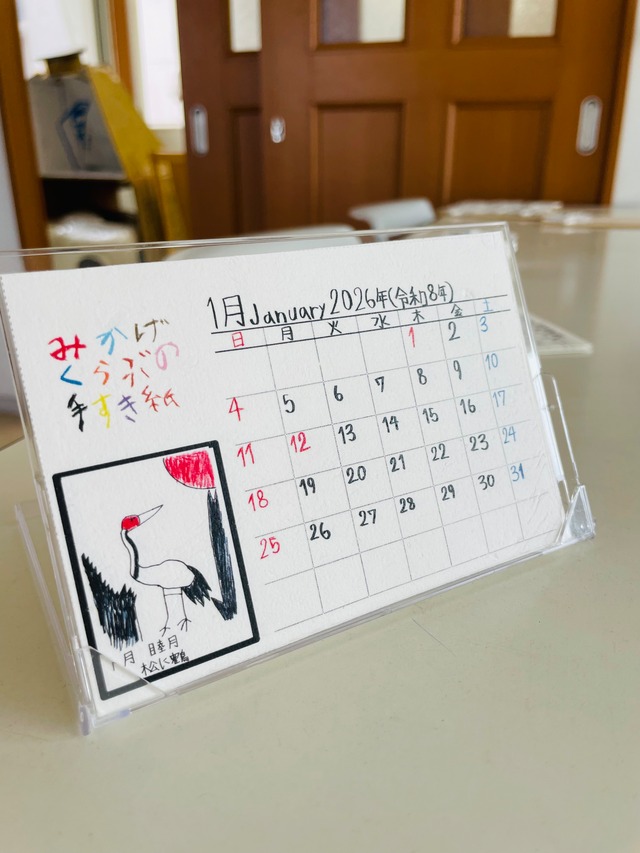 1月January2026年(令和8年)
みかげ
くらぶの
手すき紙
日 月 火 水 木 金 土
1 2 3
4 5 6 7 8 9 10
11 12 13 14 15 16 17
18 19 20 21 22 23 24
25 26 27 28 29 30 31
1月 睦月
松に鶴